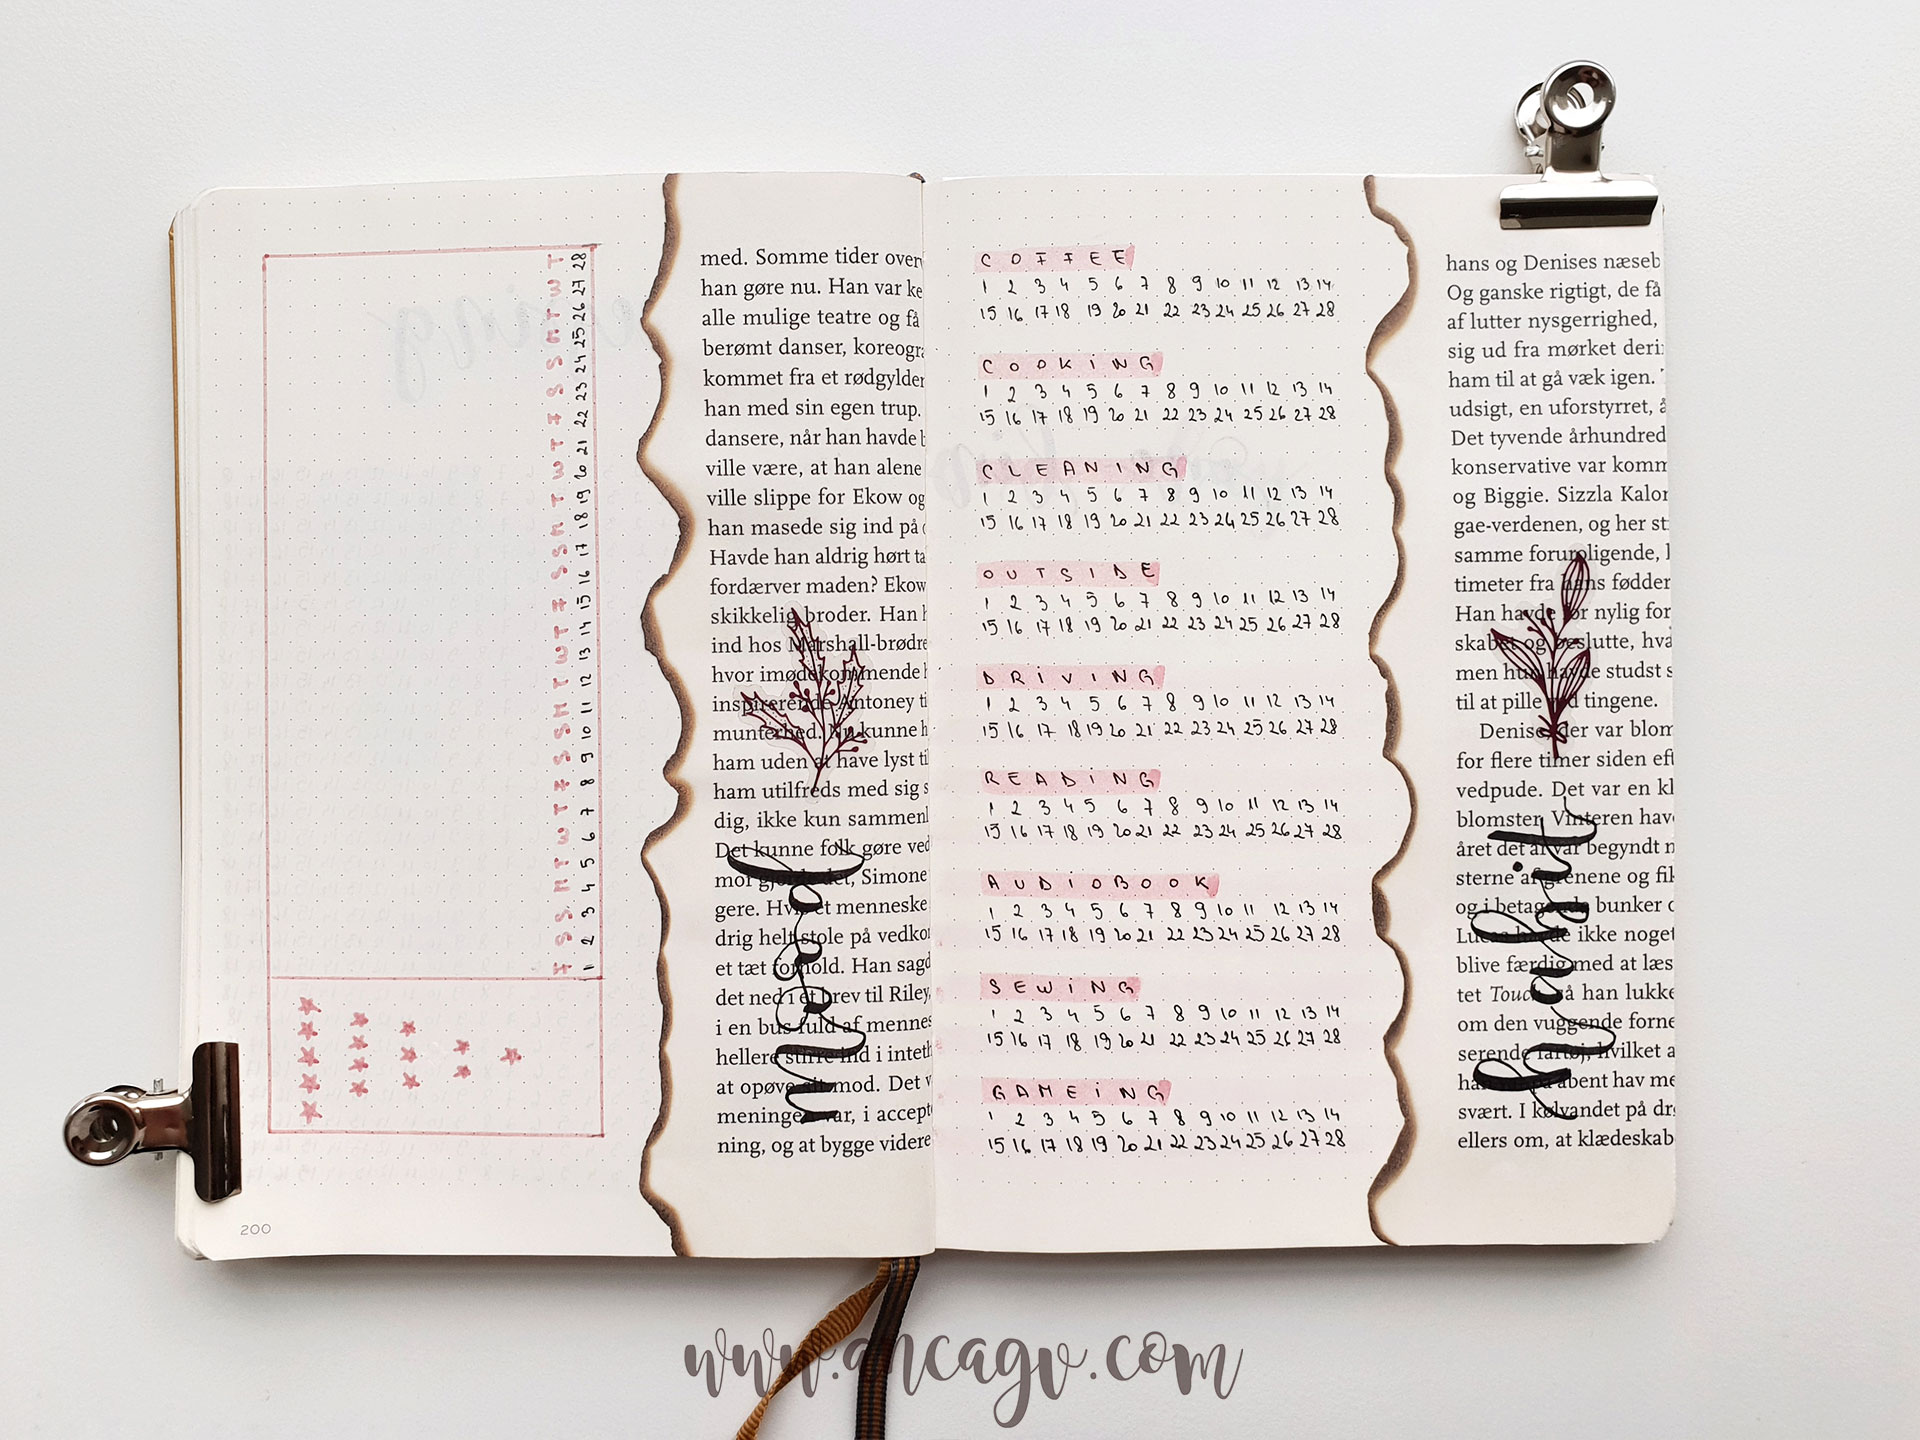 F S S M T W T F S S M T W T F S S M T W T F S S M T W T
1 2 3 4 5 6 7 8 9 10 11 12 13 14 15 16 17 18 19 20 21 22 23 24 25 26 27 28
200
med. Somme tider over
han gøre nu. Han var ke
alle mulige teatre og få
berømt danser, koreogra
kommet fra et rødgylder
han med sin egen trup.
dansere, når han havde
ville være, at han alene
ville slippe for Ekow og
han masede sig ind på
Havde han aldrig hørt ta
fordærver maden? Ekow
skikkelig broder. Han
ind hos Marshall-brødre
hvor imødekommende
inspirerende Antoney ti
munterhed. Nu kunne h
ham uden at have lyst til
ham utilfreds med sig s
dig, ikke kun sammenl
Det kunne folk gøre ved
mor gjorde det, Simone
gere. Hvis et menneske
drig helt stole på vedko
et tæt forhold. Han sagd
det ned i et brev til Riley,
i en bus fuld af mennes
hellere stirre ind i inteth
at opøve sit mod. Det v
meningen var, i accept
ning, og at bygge videre
mood
COFFEE
1 2 3 4 5 6 7 8 9 10 11 12 13 14
15 16 17 18 19 20 21 22 23 24 25 26 27 28
COOKING
1 2 3 4 5 6 7 8 9 10 11 12 13 14
15 16 17 18 19 20 21 22 23 24 25 26 27 28
CLEANING
1 2 3 4 5 6 7 8 9 10 11 12 13 14
15 16 17 18 19 20 21 22 23 24 25 26 27 28
OUTSIDE
1 2 3 4 5 6 7 8 9 10 11 12 13 14
15 16 17 18 19 20 21 22 23 24 25 26 27 28
DRIVING
1 2 3 4 5 6 7 8 9 10 11 12 13 14
15 16 17 18 19 20 21 22 23 24 25 26 27 28
READING
1 2 3 4 5 6 7 8 9 10 11 12 13 14
15 16 17 18 19 20 21 22 23 24 25 26 27 28
AUDIOBOOK
1 2 3 4 5 6 7 8 9 10 11 12 13 14
15 16 17 18 19 20 21 22 23 24 25 26 27 28
SEWING
1 2 3 4 5 6 7 8 9 10 11 12 13 14
15 16 17 18 19 20 21 22 23 24 25 26 27 28
GAMEING
1 2 3 4 5 6 7 8 9 10 11 12 13 14
15 16 17 18 19 20 21 22 23 24 25 26 27 28
hans og Denises næseb
Og ganske rigtigt, de få
af lutter nysgerrighed,
sig ud fra mørket deri
ham til at gå væk igen.
udsigt, en uforstyrret, å
Det tyvende århundred
konservative var komm
og Biggie. Sizzla Kalor
gae-verdenen, og her st
samme foruroligende,
timeter fra hans fødder
Han havde for nylig for
skabet og beslutte, hva
men hun havde studst s
til at pille ved tingene.
Denise der var blom
for flere timer siden eft
vedpude. Det var en kl
blomster. Vinteren hav
året det af var begyndt
sterne af grenene og fik
og i betagende bunker
Lucas havde ikke noget
blive færdig med at læs
tet Touch, så han lukke
om den vuggende forne
serende fartøj, hvilket a
han på åbent hav me
svært. I kølvandet på dr
ellers om, at klædeskab
habit
www.ancagv.com